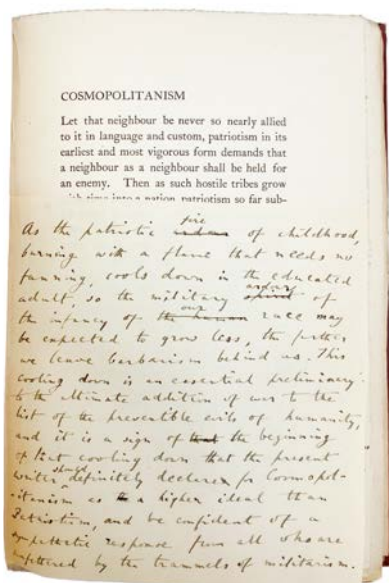 COSMOPOLITANISM
Let that neighbour be never so nearly allied
to it in language and custom, patriotism in its
earliest and most vigorous form demands that
a neighbour as a neighbour shall be held for
an enemy. Then as such hostile tribes grow
with time into a nation patriotism so far sub-
fire
As the patriotic of childhood,
burning with a flame that needs no
fanning, cools down in the educated
ardour
adult, so the military spirit of
our
the infancy of the human race may
be expected to grow less, the further
we leave barbarism behind us. This
cooling down is an essential preliminary
to the ultimate addition of war to the
list of the preventible evils of humanity,
and it is a sign of that the beginning
of that cooling down that the present
should
writer definitely declare for Cosmopol-
itanism as a higher ideal than
Patriotism, and be confident of a
sympathetic response from all who are
unfettered by the trammels of militarism.